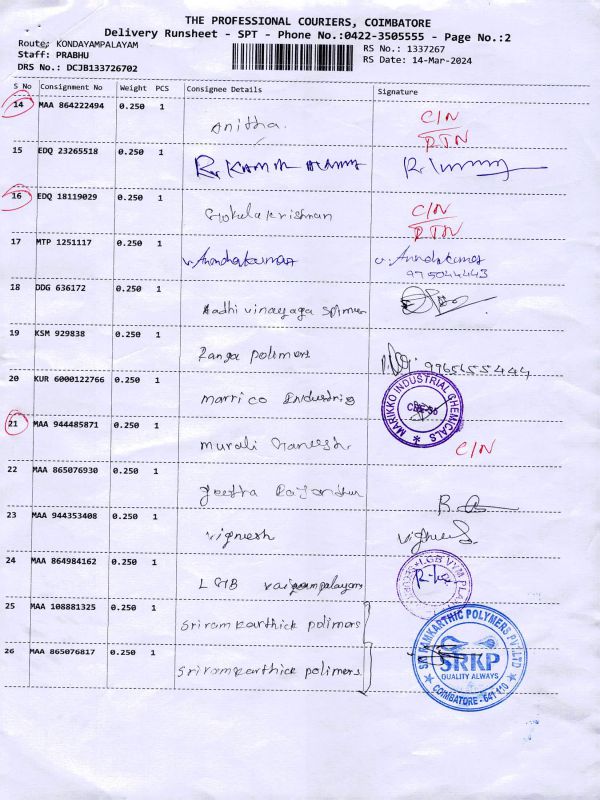 THE PROFESSIONAL COURIERS, COIMBATORE
Delivery Runsheet - SPT - Phone No.:0422-3505555 - Page No.:2
Route: KONDAYAMPALAYAM RS No.: 1337267
Staff: PRABHU RS Date: 14-Mar-2024
DRS No.: DCJB133726702
S No Consignment No Weight PCS Consignee Details Signature
14 MAA 864222494 0.250 1 Anitha. C/N
RTN
15 EDQ 23265518 0.250 1
16 EDQ 18119029 0.250 1 Gokulakrishnan C/N
RTN
17 MTP 1251117 0.250 1 V. Anandakumar V. Anandakumar
975044443
18 DDG 636172 0.250 1 Aadhi vinayaga
19 KSM 929838 0.250 1 Ranga polimers 9965655444
20 KUR 6000122766 0.250 1 Marrico MARIKKO INDUSTRIAL CHEMICALS
21 MAA 944485871 0.250 1 Murali Ganesh. C/N
22 MAA 865076930 0.250 1
23 MAA 944353408 0.250 1 Vignesh
24 MAA 864984162 0.250 1 LGB
25 MAA 108881325 0.250 1 Sriramkarthick polimars
26 MAA 865076817 0.250 1 Sriramkarthick polimers
SRI RAMKARTHIC POLYMERS PVT LTD
SRKP
QUALITY ALWAYS
COIMBATORE - 641 110